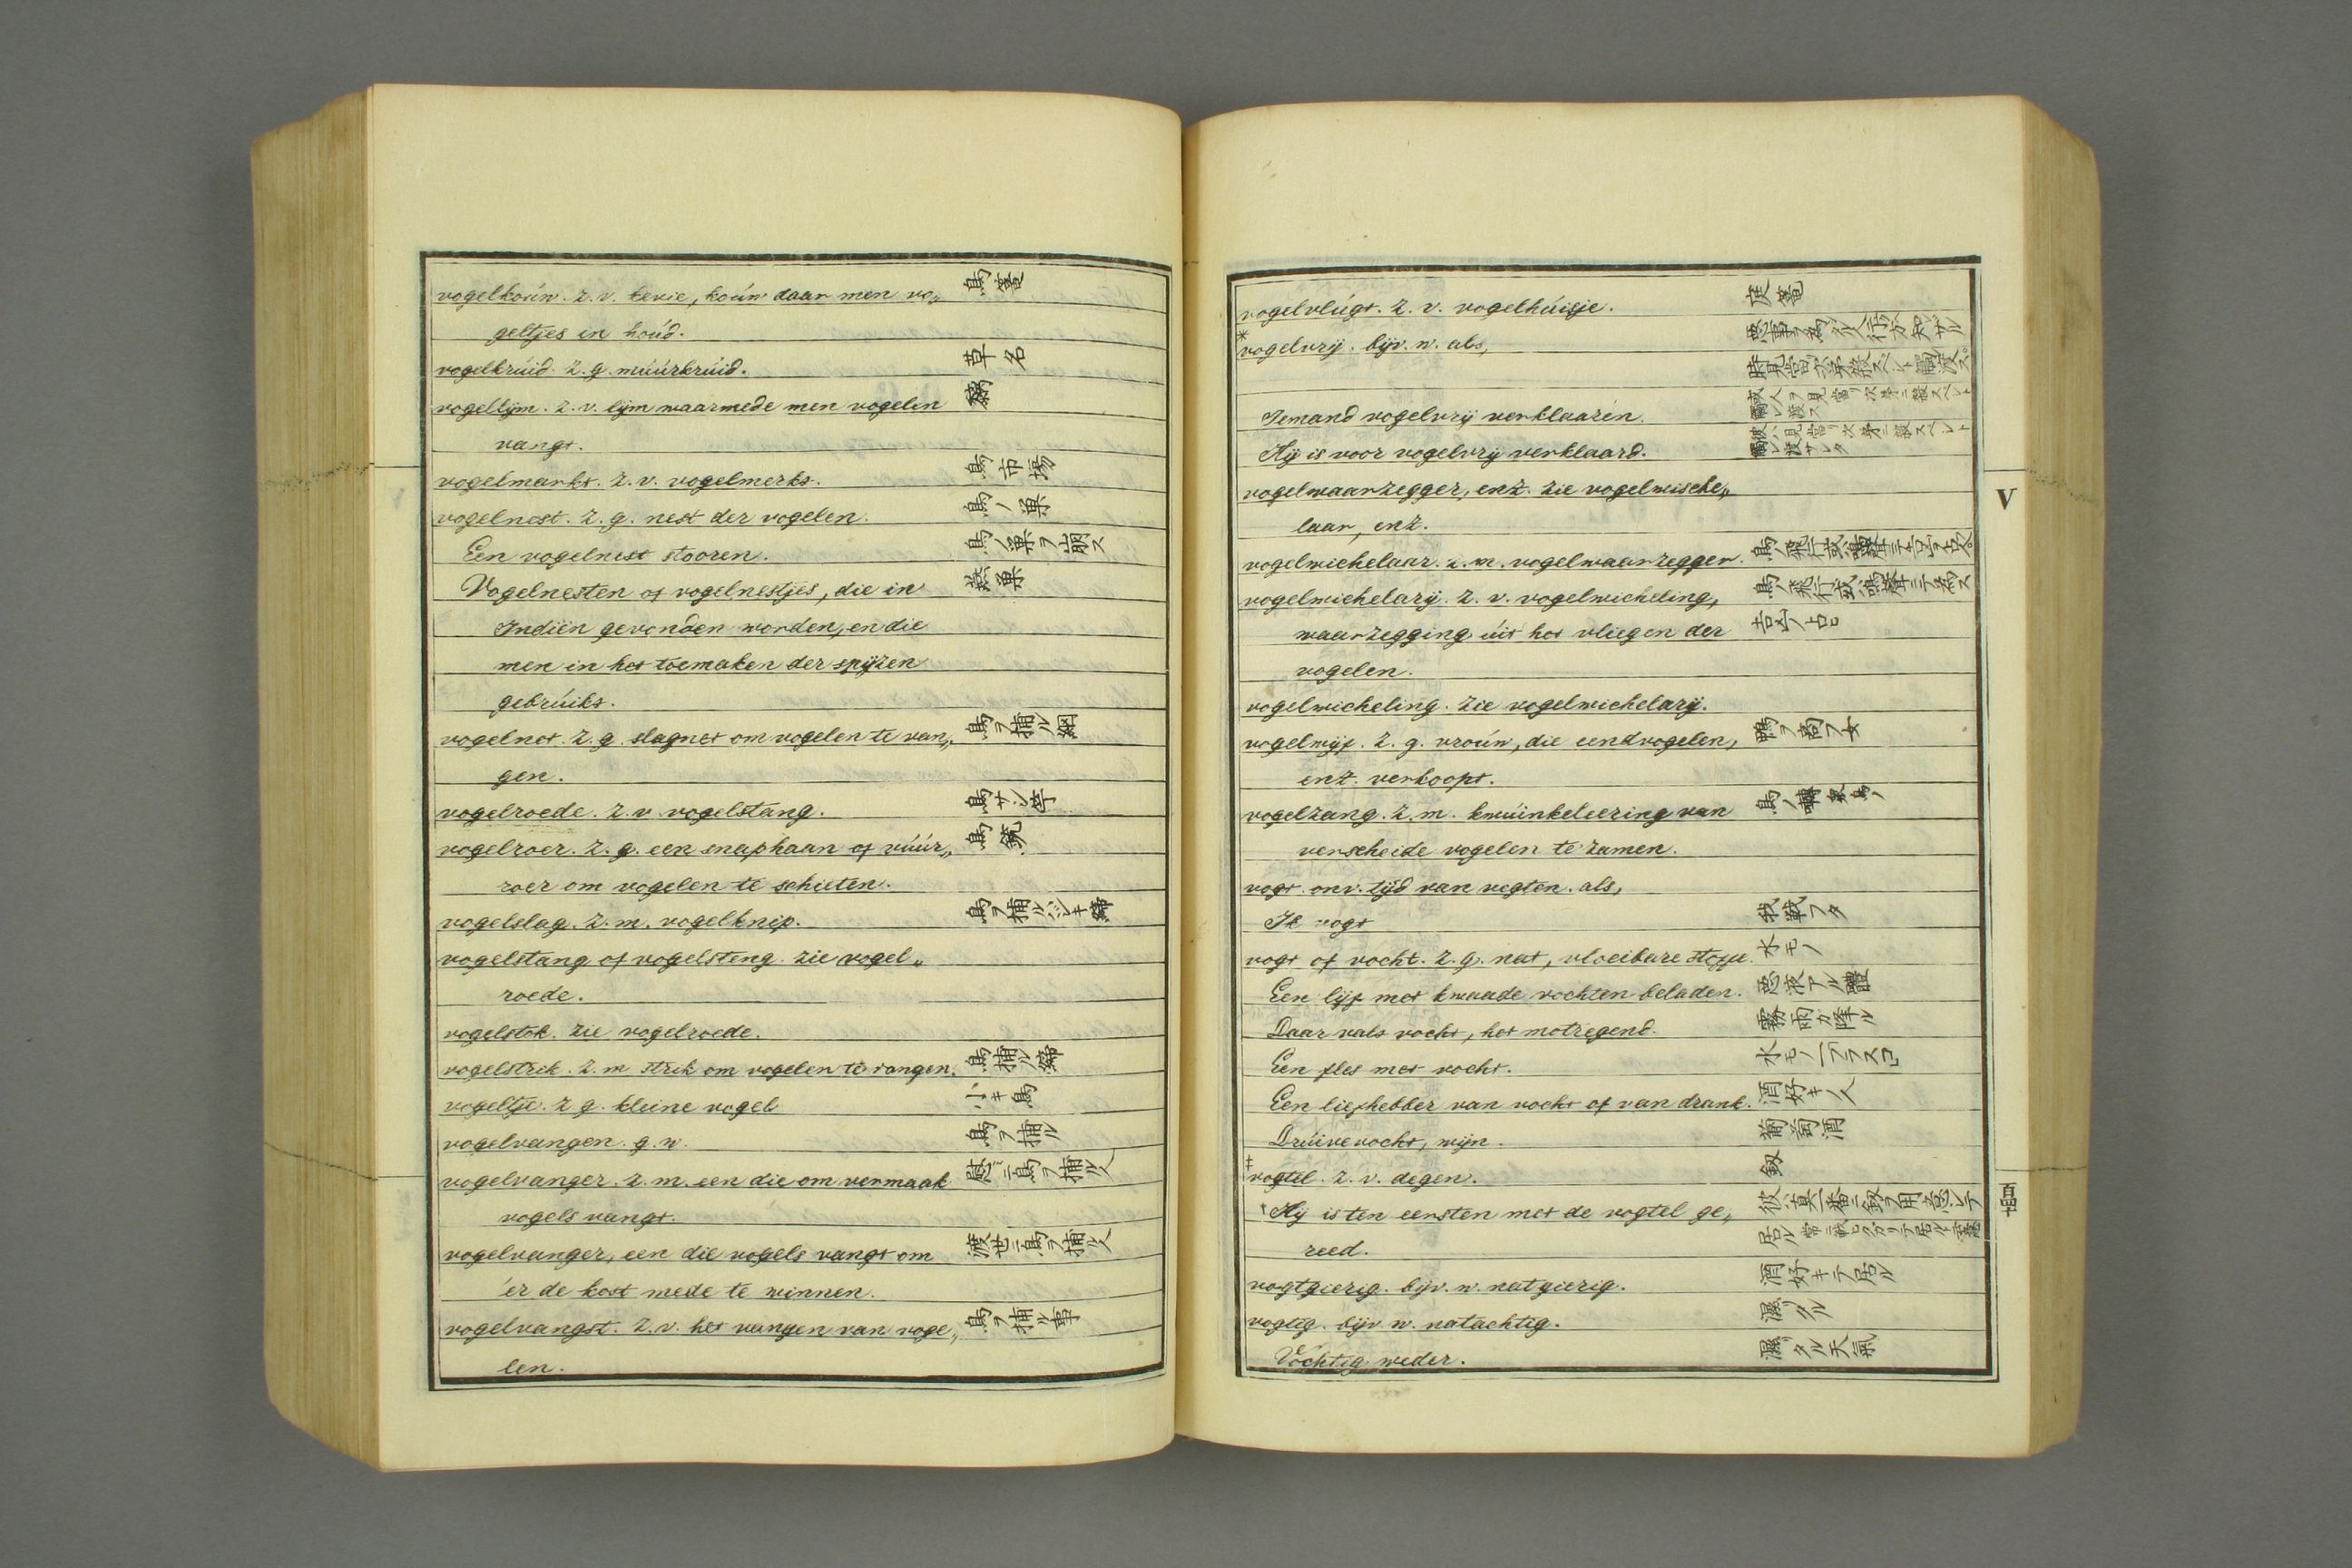 vogelkoúw. z. v. kevie, koúw daar men vo„ 鳥籠
geltjes in hoúd.
vogelkrúid. z. g. múúrkrúid. 草名
vogellijm. z. v. lijm waarmede men vogelen 黐
vangt.
vogelmarkt. z. v. vogelmerkt. 鳥市場
vogelnest. z. g. nest der vogelen. 鳥ノ巣
Een vogelnest stooren. 鳥ノ巣ヲ崩ス
Vogelnesten of vogelnestjes, die in 燕巣
Indiën gevonden worden, en die
men in het toemaken der spijzen
gebrúikt.
vogelnet. z. g. slagnet om vogelen te van„ 鳥ヲ捕ル網
gen.
vogelroede. z. v. vogelstang. 鳥サシ竿
vogelroer. z. g. een snaphaan of vúúr„ 鳥銃
roer om vogelen te schieten.
vogelslag. z. m. vogelknip. 鳥ヲ捕ル
vogelstang of vogelsteng. zie vogel„
roede.
vogelstok. zie vogelroede.
vogelstrik. z. m strik om vogelen te vangen. 鳥捕ル締
vogeltje. z g. kleine vogel 小キ鳥
vogelvangen. g. w. 鳥ヲ捕ル
vogelvanger. z. m. een die om vermaak 慰ニ鳥ヲ捕ル人
vogels vangt.
vogelvanger, een die vogels vangt om 渡世ニ鳥ヲ捕ル人
'er de kost mede te winnen.
vogelvangst. z. v. het vangen van voge„ 鳥ヲ捕ル事
len.
vogelvlúgt. z. v. vogelhúisje. 庭籠
*vogelvrij. bijv. w. als,
Iemand vogelvrij verklaaren.
Hij is voor vogelvrij verklaard.
vogelwaarzegger, enz. zie vogelwiche„
laar, enz.
V
vogelwichelaar. z. m. vogelwaarzegger.
vogelwichelarij. z. v. vogelwicheling, 鳥ノ飛行或鳴聲ニテ為ス
waarzegging úit het vliegen der 吉凶ノ占
vogelen.
vogelwicheling. zie vogelwichelarij.
vogelwijf. z. g. vroúw, die eendvogelen, 鴨ヲ商フ女
enz. verkoopt.
vogelzang. z. m. kwúinkeleering van 鳥ノ囀
verscheide vogelen te zamen.
vogt. onv. tijd van vegten. als,
Ik vogt 我戦フタ
vogt of vocht. z. g. nat, vloeibare stoffe. 水モノ
Een lijf met kwaade vochten beladen. 悪液アル體
Daar valt vocht, het motregend. 霧雨カ降ル
Een fles met vocht. 水モノ一フラスコ
Een liefhebber van vocht of van drank. 酒好キノ人
Drúivevocht, wijn. 葡萄酒
‡vogtel. z. v. degen. 劔
†Hij is ten eersten met de vogtel ge„ 彼ハ真一番ニ劔ヲ用意シテ
reed. 居ル
vogtgierig. bijv. w. natgierig. 酒好キテ居ル
vogtig. bijv w. natachtig. 濕リタル
Vochtig weder. 濕リタル天氣